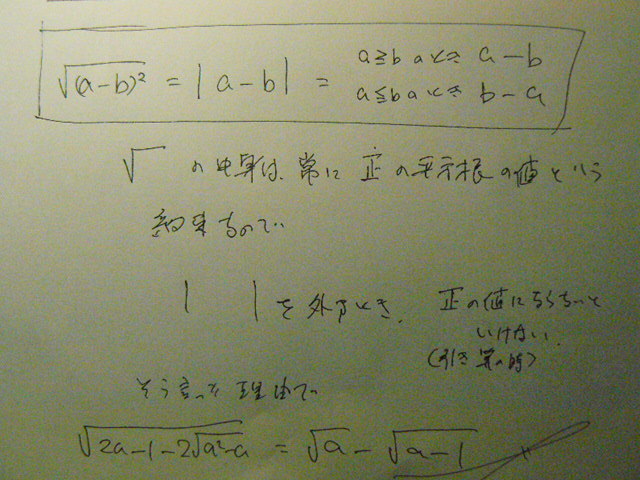 √(a-b)² = |a-b| = a≧b のとき a-b
a≦b のとき b-a
√ の中身は、常に 正 の平方根の値という
約束なので
| | を外すとき、正の値にならないと
いけない
(引き算の時)
そう言った理由で
√2a-1-2√a²-a = √a - √a-1